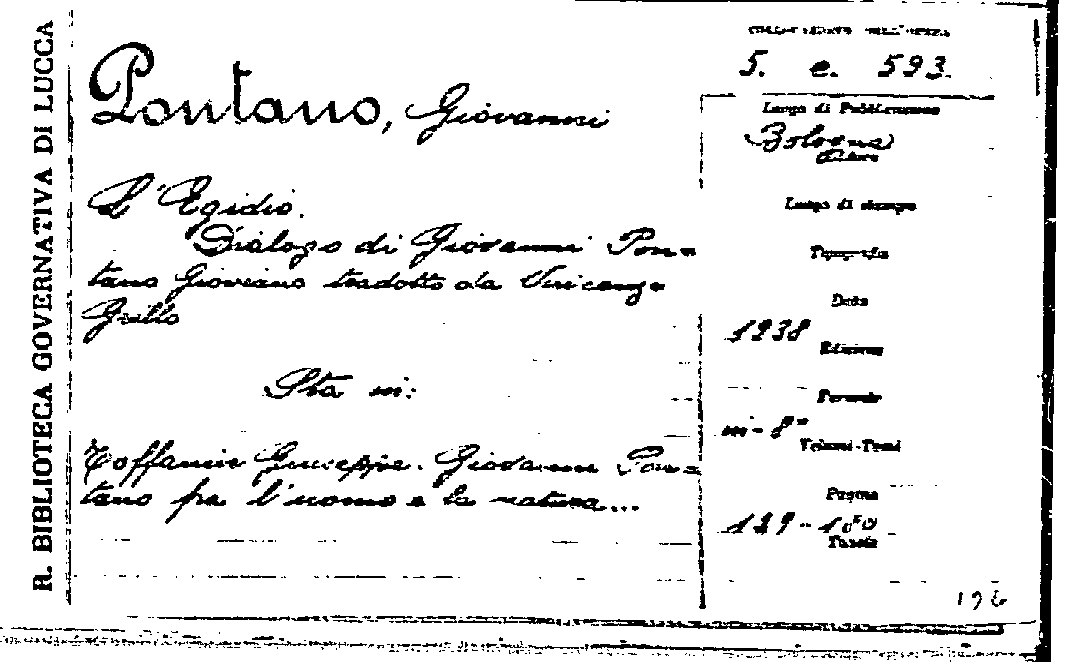 R. BIBLIOTECA GOVERNATIVA DI LUCCA
5. e. 593.
Pontano, Giovanni
L'Egidio.
Dialogo di Giovanni Pon=
tano Gioviano tradotto da Vincenzo
Grillo
Sta in:
Toffanin Giuseppe. Giovanni Pon=
tano fra l'uomo e la natura...
Luogo di Pubblicazione
Bologna
Editore
Luogo di stampa
Tipografia
Data
1938
Edizione
Formato
in-8°
Volumi-Tomi
Pagine
129-180
Tavole
196